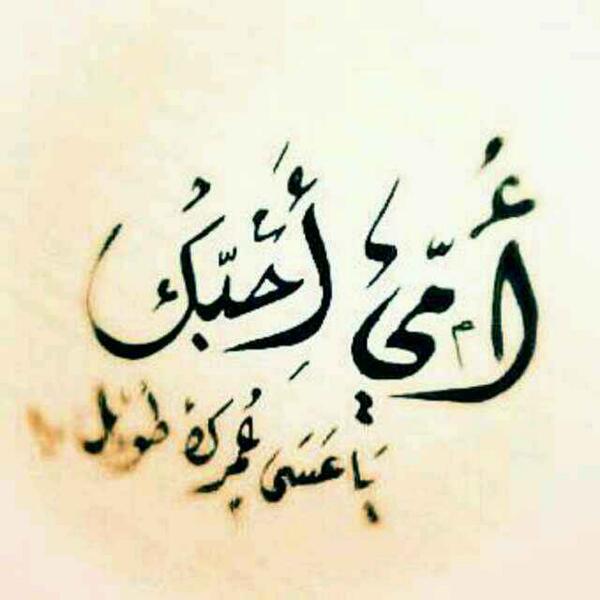 أُمّي أُحِبّكُ
يَا عَسَى عُمرك طويل